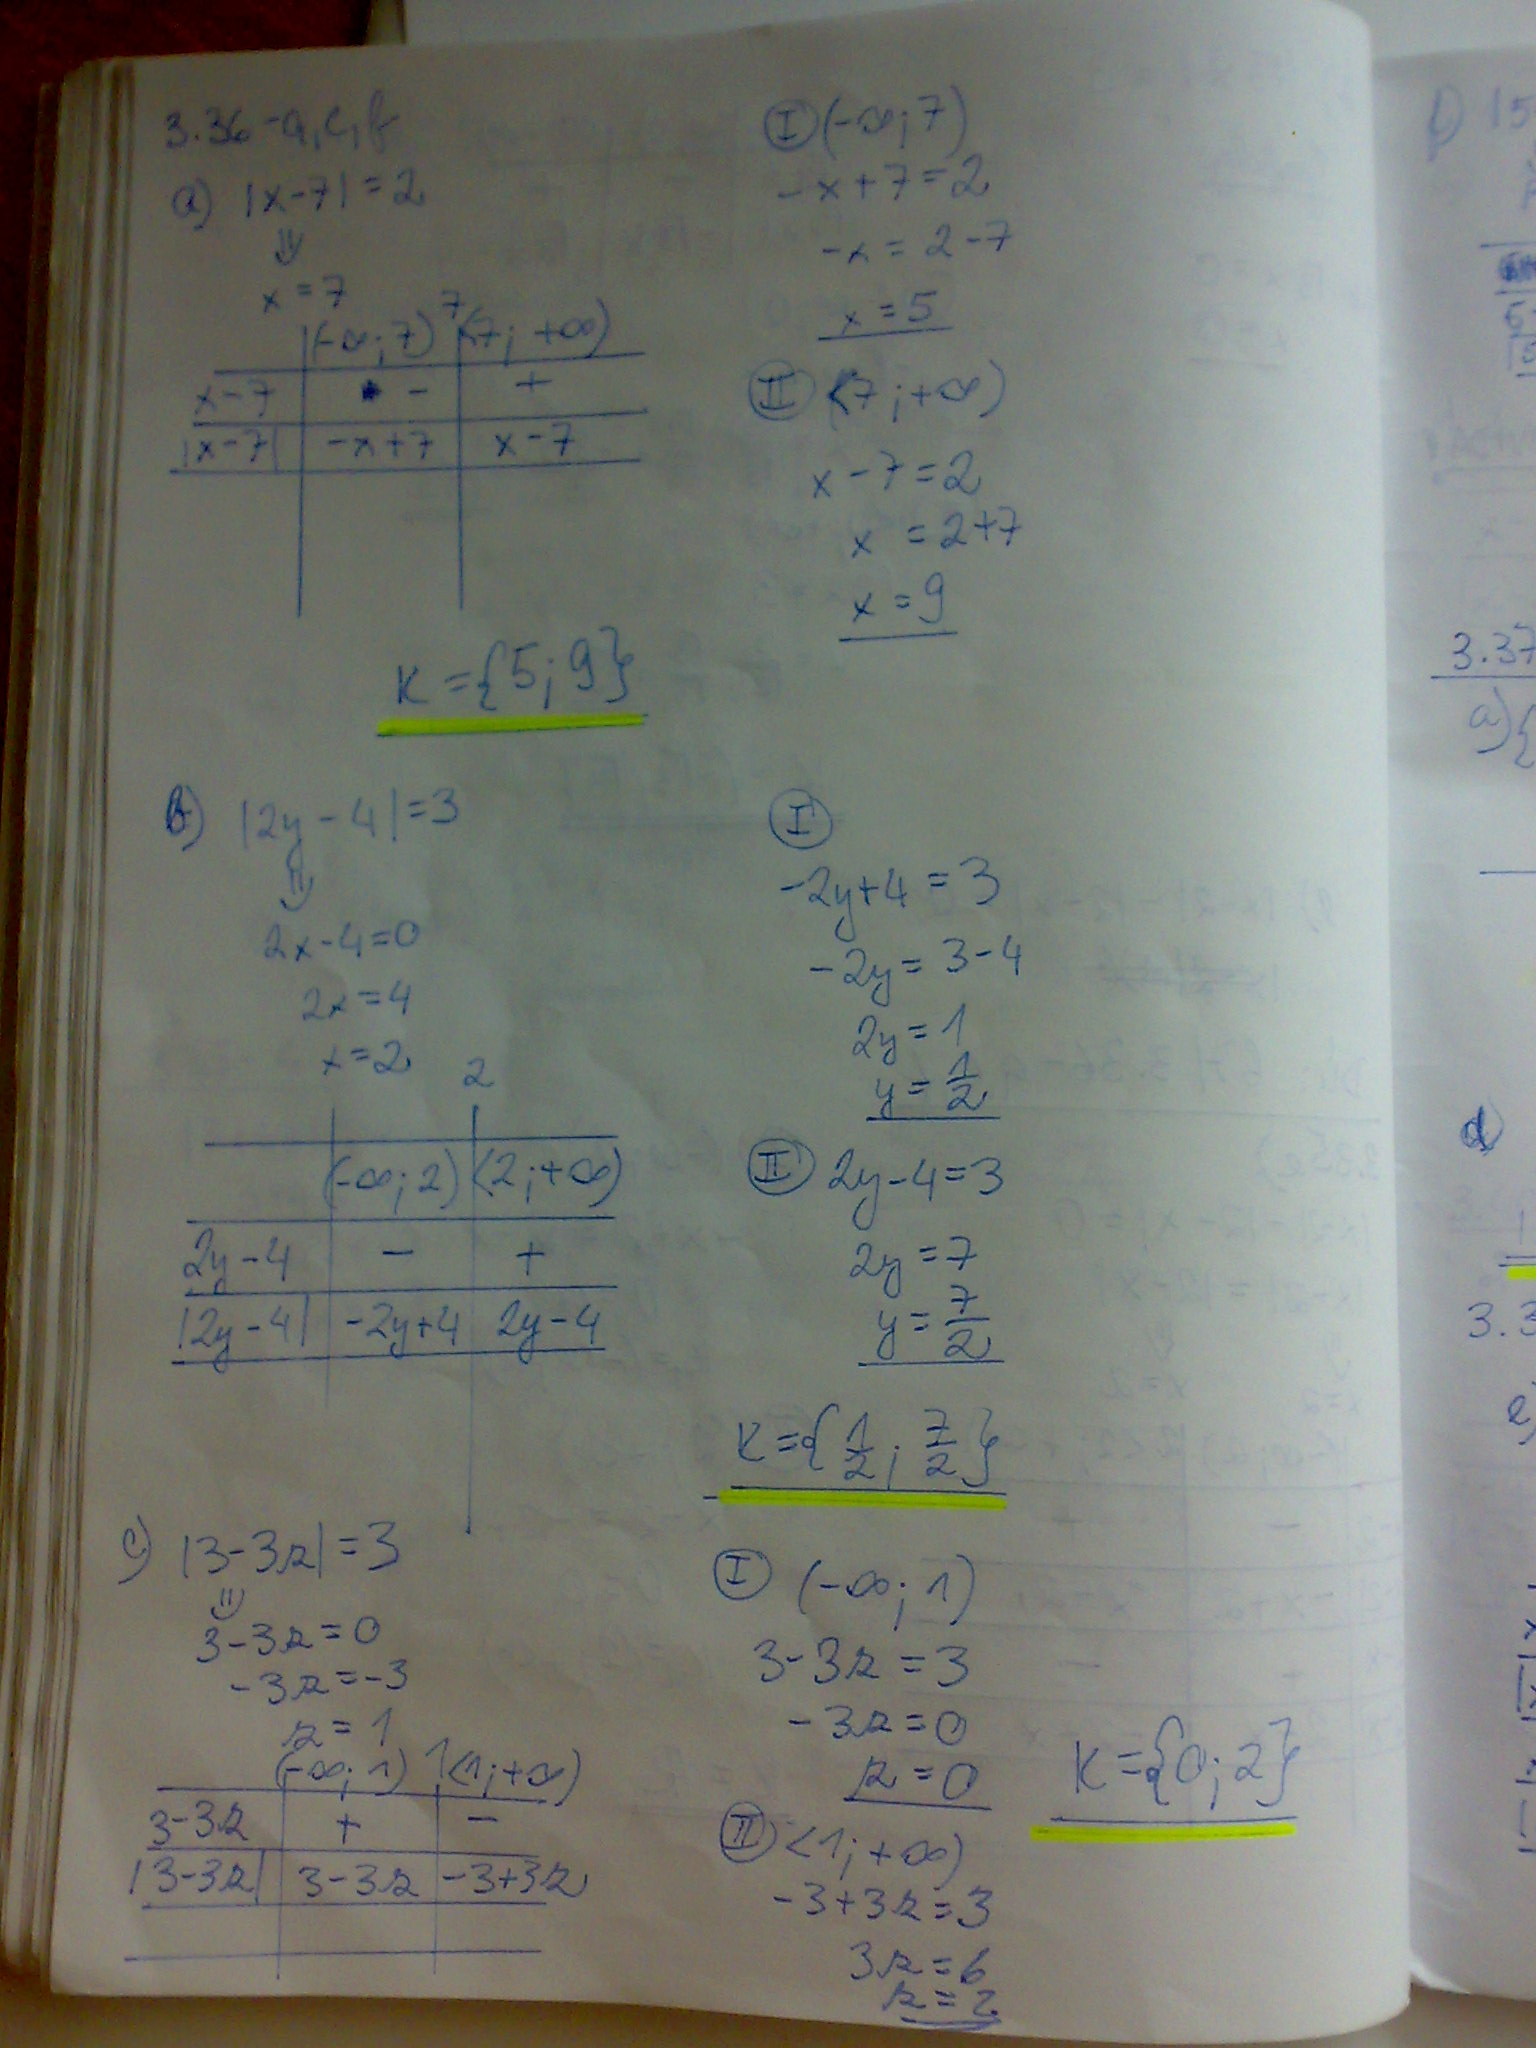 3.36-a,c,b
a) |x-7|=2
⇓
x=7
7
(-∞;7) <7; +∞)
x-7 - +
|x-7| -x+7 x-7
Ⓘ (-∞; 7)
-x+7=2
-x = 2-7
x=5
Ⓘ Ⓘ <7;+∞)
x-7=2
x = 2+7
x = 9
K={5;9}
b) |2y-4|=3
⇓
2x-4=0
2x=4
x=2
2
(-∞;2) <2;+∞)
2y-4 - +
|2y-4| -2y+4 2y-4
I
-2y+4=3
-2y=3-4
2y=1
y=1/2
II 2y-4=3
2y=7
y=7/2
K={1/2; 7/2}
c) |3-3z|=3
⇓
3-3z=0
-3z=-3
z=1
(-∞;1) 1 <1;+∞)
3-3z + -
|3-3z| 3-3z -3+3z
I (-∞;1)
3-3z=3
-3z=0
z=0
II <1;+∞)
-3+3z=3
3z=6
z=2
K={0;2}
3.37
a){
d)
3.3
e)